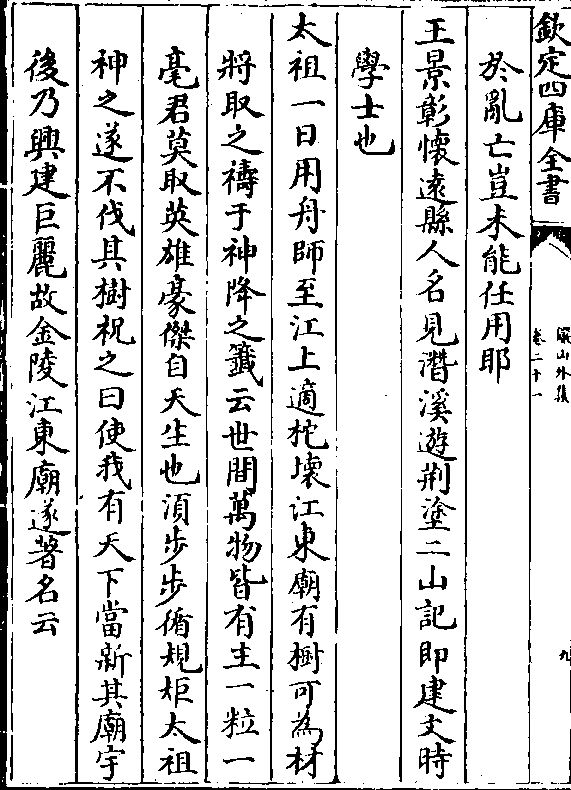 欽定四庫全書
儼山外集
卷二十一
九
於亂亡豈未能任用耶
王景彰懷遠縣人名見潛溪遊荆塗二山記即建文時
學士也
太祖一日用舟師至江上適柁壊江東廟有樹可為材
將取之禱于神降之籤云世間萬物皆有主一粒一
毫君莫取英雄豪傑自天生也湏步步循規矩太祖
神之遂不伐其樹祝之曰使我有天下當新其廟宇
後乃興建巨麗故金陵江東廟遂著名云